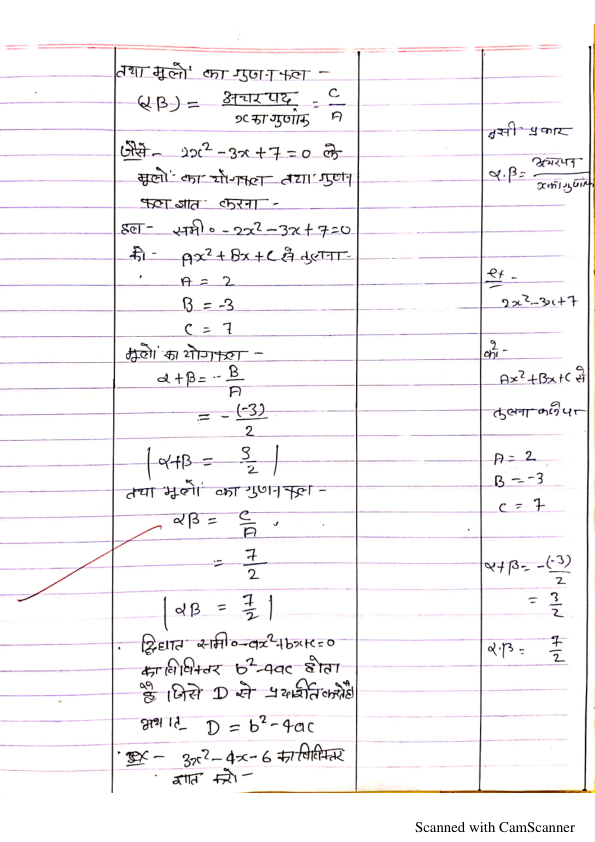 तथा मूलों का गुणनफल -
(αβ) = अचर पद / x का गुणांक = C / A
जैसे - 2x² - 3x + 7 = 0 के
मूलों का योगफल तथा गुणन
फल ज्ञात करना -
हल - समी० - 2x² - 3x + 7 = 0
की - Ax² + Bx + C से तुलना -
A = 2
B = -3
C = 7
मूलों का योगफल -
α + β = - B / A
= - (-3) / 2
| α+β = 3 / 2 |
तथा मूलों का गुणनफल -
αβ = C / A
= 7 / 2
| αβ = 7 / 2 |
द्विघात समी० - ax² + bx + c = 0
का विविक्तर b² - 4ac होता
है जिसे D से प्रदर्शित करते हैं
अर्थात D = b² - 4ac
Ex - 3x² - 4x - 6 का विविक्तर
ज्ञात करो -
इसी प्रकार
α.β = अचरपद / x का गुणांक
ex -
2x² - 3x + 7
को -
Ax² + Bx + C से
तुलना करने पर
A = 2
B = -3
C = 7
α+β = - (-3) / 2
= 3 / 2
α.β = 7 / 2
Scanned with CamScanner